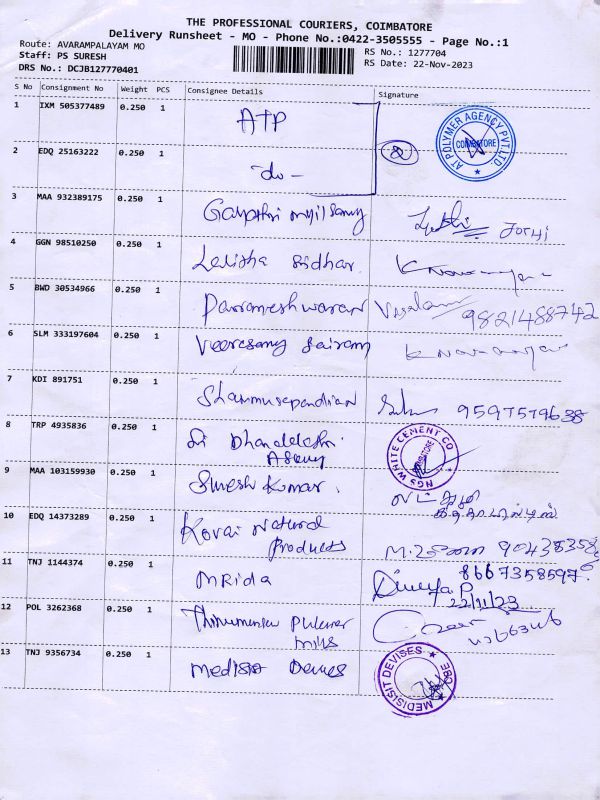 THE PROFESSIONAL COURIERS, COIMBATORE
Delivery Runsheet - MO - Phone No.:0422-3505555 - Page No.:1
Route: AVARAMPALAYAM MO
RS No.: 1277704
Staff: PS SURESH
RS Date: 22-Nov-2023
DRS No.: DCJB127770401
S No Consignment No Weight PCS Consignee Details Signature
1 IXM 505377489 0.250 1 ATP
AT POLYMER AGENCY PVT.LTD. COIMBATORE
2 EDQ 25163222 0.250 1 -do-
3 MAA 932389175 0.250 1 Gayathri
4 GGN 98510250 0.250 1 Lalisha Sidhar
5 BWD 30534966 0.250 1 Parrameshwaran 9821488742
6 SLM 333197604 0.250 1 Veerasamy Sairam
7 KDI 891751 0.250 1 Shanmugapandian 9597579638
8 TRP 4935836 0.250 1 Sri Dhanalakshmi
Agency
NGS WHITE CEMENT CO COIMBATORE
9 MAA 103159930 0.250 1 Suresh Kumar.
10 EDQ 14373289 0.250 1 Kovai Natural
Products
11 TNJ 1144374 0.250 1 Mrida Divya P 8667358597
22/11/23
12 POL 3262368 0.250 1 Thirumurugan
Mills
13 TNJ 9356734 0.250 1 Medisist Devises
MEDISISIT DEVISES CBE